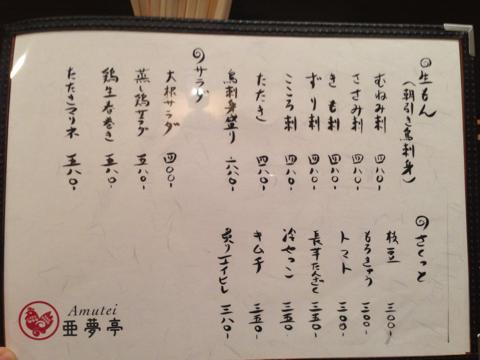 生もん
(朝引き鳥刺身)
むねみ刺 四八〇-
ささみ刺 四八〇-
きも刺 四八〇-
ずり刺 四八〇-
こころ刺 四八〇-
たたき 四八〇-
鳥刺身盛り 一六八〇-
サラダ
大根サラダ 四〇〇-
蒸し鶏サラダ 五八〇-
鶏生春巻き 五八〇-
たたきマリネ 五八〇-
さくっと
枝豆 三〇〇-
もろきゅう 三〇〇-
トマト 三〇〇-
長芋たんざく 三五〇-
冷やっこ 三五〇-
キムチ 三五〇-
炙りエイヒレ 三八〇-
Amutei
亜夢亭